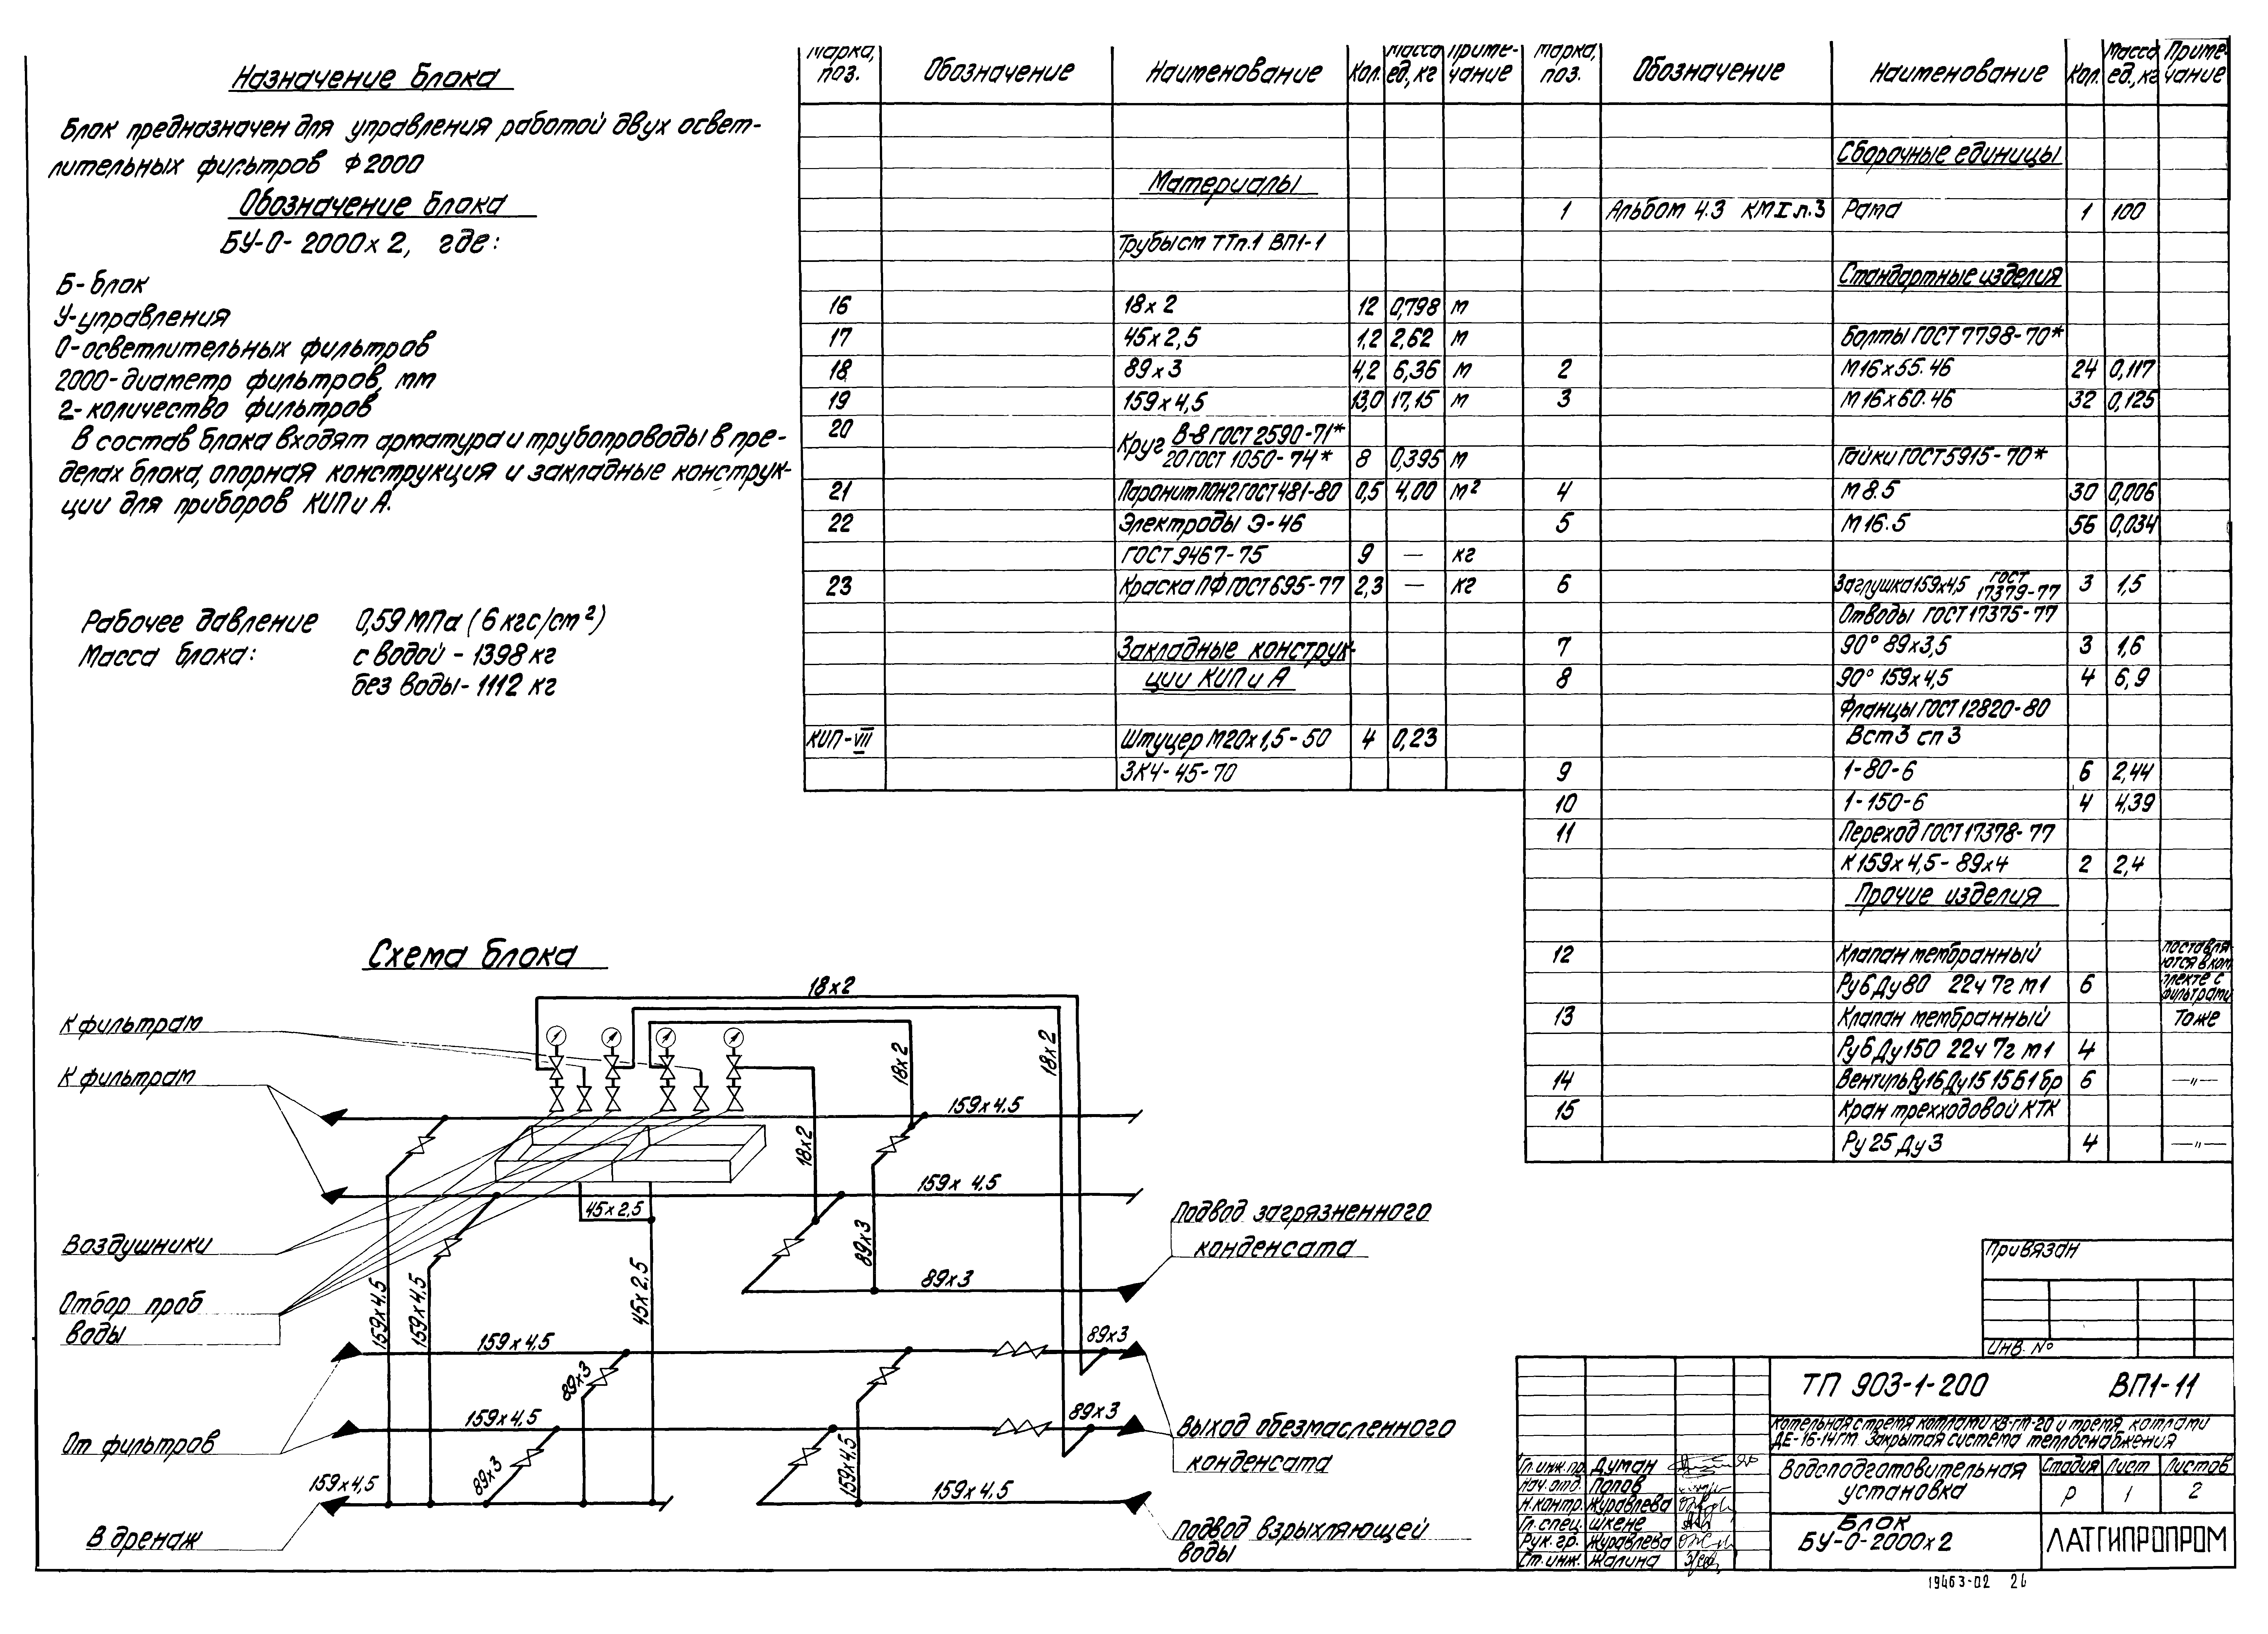 Назначение блока
Блок предназначен для управления работой двух освет-
лительных фильтров Ф 2000
Обозначение блока
БУ-О-2000х2, где:
Б-блок
У-управления
О-осветлительных фильтров
2000-диаметр фильтров, мм
2-количество фильтров
В состав блока входят арматура и трубопроводы в пре-
делах блока, опорная конструкция и закладные конструк-
ции для приборов КИП и А.
Рабочее давление 0,59 МПа (6 кгс/см²)
Масса блока: с водой - 1398 кг
без воды - 1112 кг
Марка, поз. Обозначение Наименование Кол. Масса ед., кг Приме-чание
Материалы
Трубы ст ТТп.1 ВП1-1
16 18х2 12 0,798 м
17 45х2,5 1,2 2,62 м
18 89х3 4,2 6,36 м
19 159х4,5 13,0 17,15 м
20 Круг В-8 ГОСТ 2590-71*
20 ГОСТ 1050-74* 8 0,395 м
21 Паронит ПОН2 ГОСТ 481-80 0,5 4,00 м²
22 Электроды Э-46
ГОСТ 9467-75 9 — кг
23 Краска ПФ ГОСТ 695-77 2,3 — кг
Закладные конструк-
ции КИП и А
КИП-VII Штуцер М20х1,5-50 4 0,23
ЗК4-45-70
Марка, поз. Обозначение Наименование Кол. Масса ед., кг Приме-чание
Сборочные единицы
1 Альбом 4.3 КМI л.3 Рама 1 100
Стандартные изделия
Болты ГОСТ 7798-70*
2 М16х55.46 24 0,117
3 М16х60.46 32 0,125
Гайки ГОСТ 5915-70*
4 М8.5 30 0,006
5 М16.5 56 0,034
6 Заглушка 159х4,5 ГОСТ 17379-77 3 1,5
Отводы ГОСТ 17375-77
7 90° 89х3,5 3 1,6
8 90° 159х4,5 4 6,9
Фланцы ГОСТ 12820-80
Вст3 сп3
9 1-80-6 6 2,44
10 1-150-6 4 4,39
11 Переход ГОСТ 17378-77
К 159х4,5-89х4 2 2,4
Прочие изделия
12 Клапан мембранный поставля-
ются в ком
Ру6 Ду80 22ч 7г м1 6 плекте с
фильтрами
13 Клапан мембранный То же
Ру6 Ду150 22ч 7г м1 4
14 Вентиль Ру16 Ду15 15Б1бр 6 —„—
15 Кран трехходовой КТК
Ру25 Ду3 4 —„—
Схема блока
18х2
К фильтрам
К фильтрам
18х2
18х2
159х4,5
18х2
159х4,5
45х2,5
Подвод загрязненного
конденсата
Воздушники
89х3
89х3
Отбор проб
воды
159х4,5
159х4,5
45х2,5
159х4,5
89х3
89х3
159х4,5
89х3
Выход обезмасленного
конденсата
От фильтров
159х4,5
89х3
159х4,5
159х4,5
В дренаж
Подвод взрыхляющей
воды
Привязан
Инв. №
ТП 903-1-200 ВП1-11
Котельная с тремя котлами КВ-ГМ-20 и тремя котлами
ДЕ-16-14ГМ. Закрытая система теплоснабжения
Гл. инж. пр. Думан
Нач. отд. Попов
Н. контр. Журавлева
Гл. спец. Шкене
Рук. гр. Журавлева
Ст. инж. Жалина
Водоподготовительная
установка
Стадия Лист Листов
Р 1 2
Блок
БУ-О-2000х2
ЛАТГИПРОПРОМ
19463-02